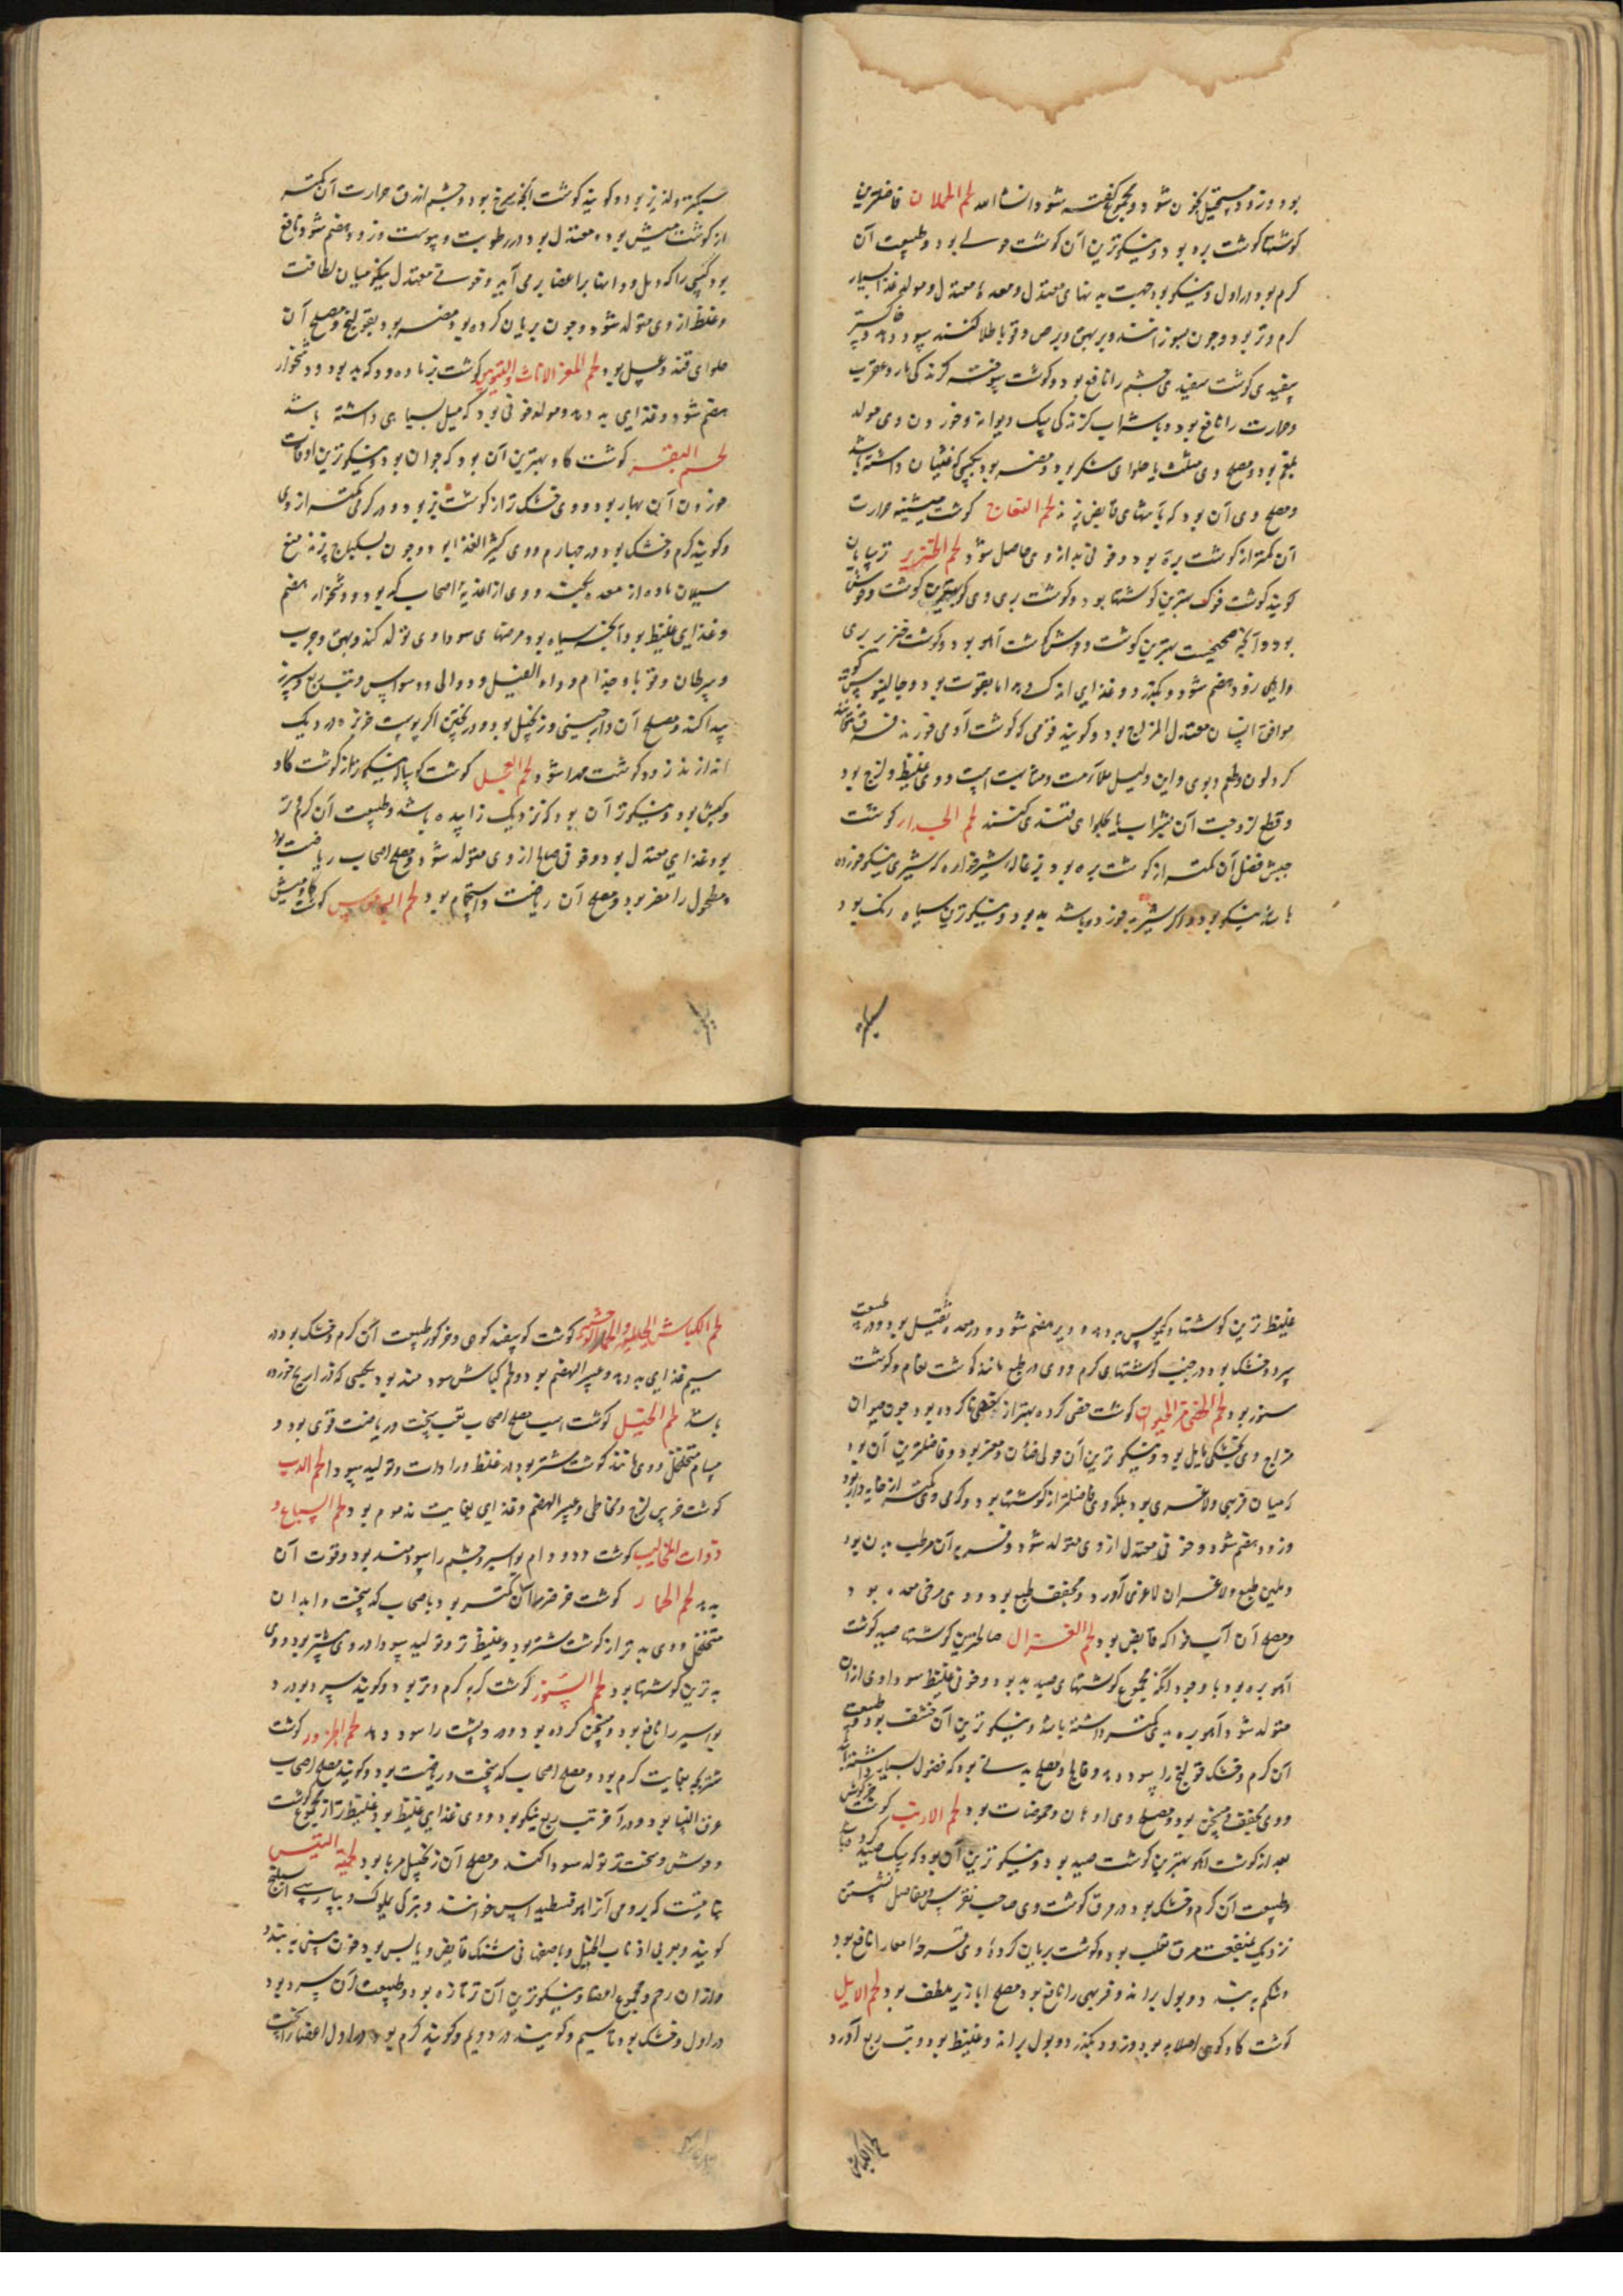 بود و زود مستحیل بخون شود و مجموع گفته شود انشاالله لحم الحملان فاضلترین
گوشتها گوشت بره بود و نیکوترین آن گوشت حولی بود و طبیعت آن
گرم بود در اول و نیکو بود جهت بدنهای معتدل و معده معتدل و مولد غذا بسیار
گرم و تر بود و چون بسوزانند و بر بهق و برص و قوبا طلا کنند سود دهد و خاکستر
سفیدی گوشت سفیدی چشم را نافع بود و گوشت سوخته گزندگی مار و عقرب
و جراره را نافع بود و با شراب گزندگی سگ دیوانه و خوردن وی مولد
بلغم بود و مصلح وی مثلث یا حلوای شکر بود و مضر بود بکسی که غثیان داشته باشد
و مصلح وی آن بود که با شربتهای قابض پزند لحم النعاج گوشت میشینه حرارت
آن کمتر از گوشت بره بود و خونی بد از وی حاصل شود لحم الخنزیر ترسایان
گویند گوشت خوک بهترین گوشتها بود و گوشت بری وی بهترین گوشت وحوش
بود و آنچه صحیحست بهترین گوشت وحوش گوشت آهو بود و گوشت خنزیر بری
و اهلی زود هضم شود و بگذرد و غذایی اندک دهد اما بقوت بود و جالینوس گوید
موافق انسان معتدل المزاج بود و گویند قومی که گوشت آدمی خوردند فرق نتوانستند
کرد لون و طعم و بوی و این دلیل ملازمت و مناسبت است و وی غلیظ و لزج بود
و قطع لزوجت آن بشراب یا بحلوای قندی کنند لحم الجدا گوشت
جیش فضل آن کمتر از گوشت بره بود بزغاله شیرخواره که شیری نیکو خورده
باشد نیکو بود و اگر شیر بد خورده باشد بد بود و نیکوترین سیاه رنگ بود
سبکتر و لذیذ بود و گویند گوشت آنچه سرخ بود و چشم ازرق حرارت آن کمتر
از گوشت میش بود و معتدل بود در رطوبت و یبوست و زود هضم شود و نافع
بود کسی را که دمل و دانها بر اعضا برمی آید و خونی معتدل نیکو میان لطافت
و غلظ از وی متولد شود و چون بریان کرده بود مضر بود بقولنج و مصلح آن
حلوای قند و عسل بود لحم المعز الاناث و التیوس گوشت بز ماده و دکه بد بود و دشخوار
هضم شود و غذایی بد دهد و مولد خونی بود که میل بسیاهی داشته باشد
لحم البقر گوشت گاو بهترین آن بود که جوان بود و نیکوترین اوقات
خوردن آن بهار بود و وی خشک تر از گوشت بز بود و در گرمی کمتر از وی
و گویند گرم و خشک بود در چهارم و وی کثیر الغذا بود و چون بسکباج پزند منع
سیلان ماده از معده بکند و وی از اغذیه اصحاب کد بود و دشخوار هضم
و غذایی غلیظ بود آنچه سیاه بود مرضهای سوداوی تولد کند و بهق و جرب
و سرطان و قوبا و جذام و داء الفیل و دوالی و وسواس و تب ربع و سپرز
پیدا کند و مصلح آن دارچینی و زنجبیل بود و در پختن اگر پوست خربزه در دیک
اندازند زود گوشت مهرا شود لحم العجل گوشت گوساله نیکوتر از گوشت گاو
و کبش بود و نیکوتر آن بود که نزدیک زاییده باشد و طبیعت آن گرم و تر
بود غذایی معتدل بود و خونی صالح از وی متولد شود و مصلح اصحاب ریاضت بود
و مطحول را مضر بود و مصلح آن ریاضت و استحمام بود لحم الجاموس گوشت گاومیش
سبکتر
غلیظ ترین گوشتها و کیموس بد دهد و دیر هضم شود و در معده ثقیل بود و در طبیعت
سرد و خشک بود در جنب گوشتهای گرم و وی در طبع مانند گوشت نعام و گوشت
ستور بود لحم الخصی من الحیوان گوشت خصی کرده بهتر از خصی ناکرده بود چون میزان
مزاج وی بخشکی مایل بود و نیکوترین آن حولی ضان و معز بود و فاضلترین آن بود
که میان فربهی و لاغری بود بلکه وی فاضلتر از گوشتها بود و گرمی وی کمتر از خایه دار بود
و زود هضم شود و خونی معتدل از وی متولد شود و فربه آن مرطب بدن بود
و ملین طبع و لاغر آن لاغری آورد و مجفف طبع بود و وی مرخی معده بود و
و مصلح آن آب فواکه قابض بود لحم الغزال صالحترین گوشتها صید گوشت
آهو بره بود با وجود آنکه مجموع گوشتهای صید بد بود و خونی غلیظ سوداوی از آن
متولد شود آهو بره بدی کمتر داشته باشد و نیکوترین آن خشف بود و طبیعت
آن گرم و خشک قولنج را سود دهد و فالج و مصلح بدنی بود که فضول بسیار داشته باشد
و وی مجفف و مسخن بود و مصلح وی ادهان و حموضات بود لحم الارنب گوشت خرگوش
بعد از گوشت آهو بهترین گوشت صید بود و نیکوترین آن بود که سگ صید کرده باشد
و طبیعت آن گرم و خشک بود و در مرق گوشت وی صاحب نقرس و مفاصل نشستن
نزدیک بمنفعت مرق ثعلب بود و گوشت بریان کرده وی قرحه امعا را نافع بود
و شکم ببندد و بول براند و فربهی را نافع بود و مصلح ابازیر ملطف بود لحم الایل
گوشت گاو کوهی اصلا بد بود و زود بگذرد و بول براند و غلیظ بود و تب ربع آورد
لحم الکباش
لحم الکباش الجبلیه و الحمار الوحشی گوشت گوسفند کوهی و خرگور طبیعت آن گرم و خشک بود در
سیم غذایی بد دهد و عسر الهضم بود و لحم کباش سودمند بود بکسی که ذراریح خورده
باشد لحم الخیل گوشت اسب مصلح اصحاب تعب سخت و ریاضت قوی بود و
مسام متخلخل و وی مانند گوشت شتر بود در غلظ و رداءت و تولید سودا لحم الدب
گوشت خرس لزج و مخاطی و عسر الهضم و غذایی بغایت مذموم بود لحم السباع و
ذوات المخالیب گوشت دد و دام بواسیر و چشم را سودمند بود و قوت آن
بدهد لحم الحمار گوشت خر ضرر آن کمتر بود باصحاب کد سخت و ابدان
متخلخل و وی بدتر از گوشت شتر بود و غلیظ تر و تولید سودا در وی بیشتر بود و وی
بدترین گوشتها بود لحم السنور گوشت گربه گرم و تر بود و گویند سرد بود و
بواسیر را نافع بود و مسخن گرده بود و درد پشت را سود دهد لحم الجزور گوشت
شتر بچه بغایت گرم بود و مصلح اصحاب کد سخت و ریاضت بود و گویند مصلح اصحاب
عرق النسا بود و در آخر تب ربع نیکو بود و وی غذایی غلیظ بود غلیظ تر از مجموع گوشت
وحوش و سخت تر تولد سودا کند و مصلح آن زنجبیل مربا بود لحیه التیس
نباتیست که برومی آنرا هو فسطیداس خوانند و بترکی یملوک و بپارسی اسلنج
گویند و بعربی اذناب الخیل و باصفهانی شنک قابض و یابس بود خون بینی ببندد
و از آن رحم و مجموع اعضا و نیکوترین آن تر تازه بود و طبیعت آن سرد بود
در اول و خشک بود تا سیم و گویند در دویم و گویند گرم بود در اول اعضا را سخت